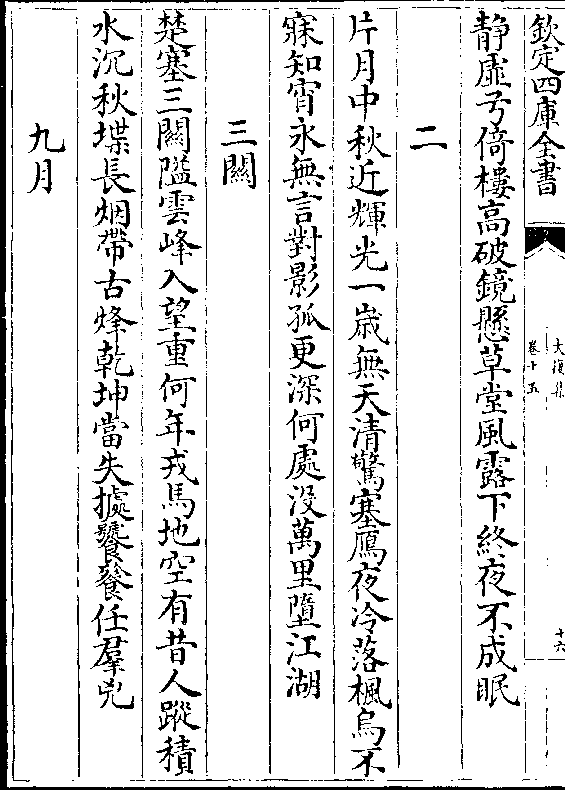 欽定四庫全書
大復集
卷十五
十六
静虛亏倚樓高破鏡懸草堂風露下終夜不成眠
二
片月中秋近輝光一歳無天清驚塞鴈夜冷落楓烏不
寐知宵永無言對影孤更深何處没萬里墮江湖
三關
楚塞三關隘雲峰入望重何年戎馬地空有昔人蹤積
水沉秋堞長烟帶古烽乾坤當失據饕餮任羣兇
九月